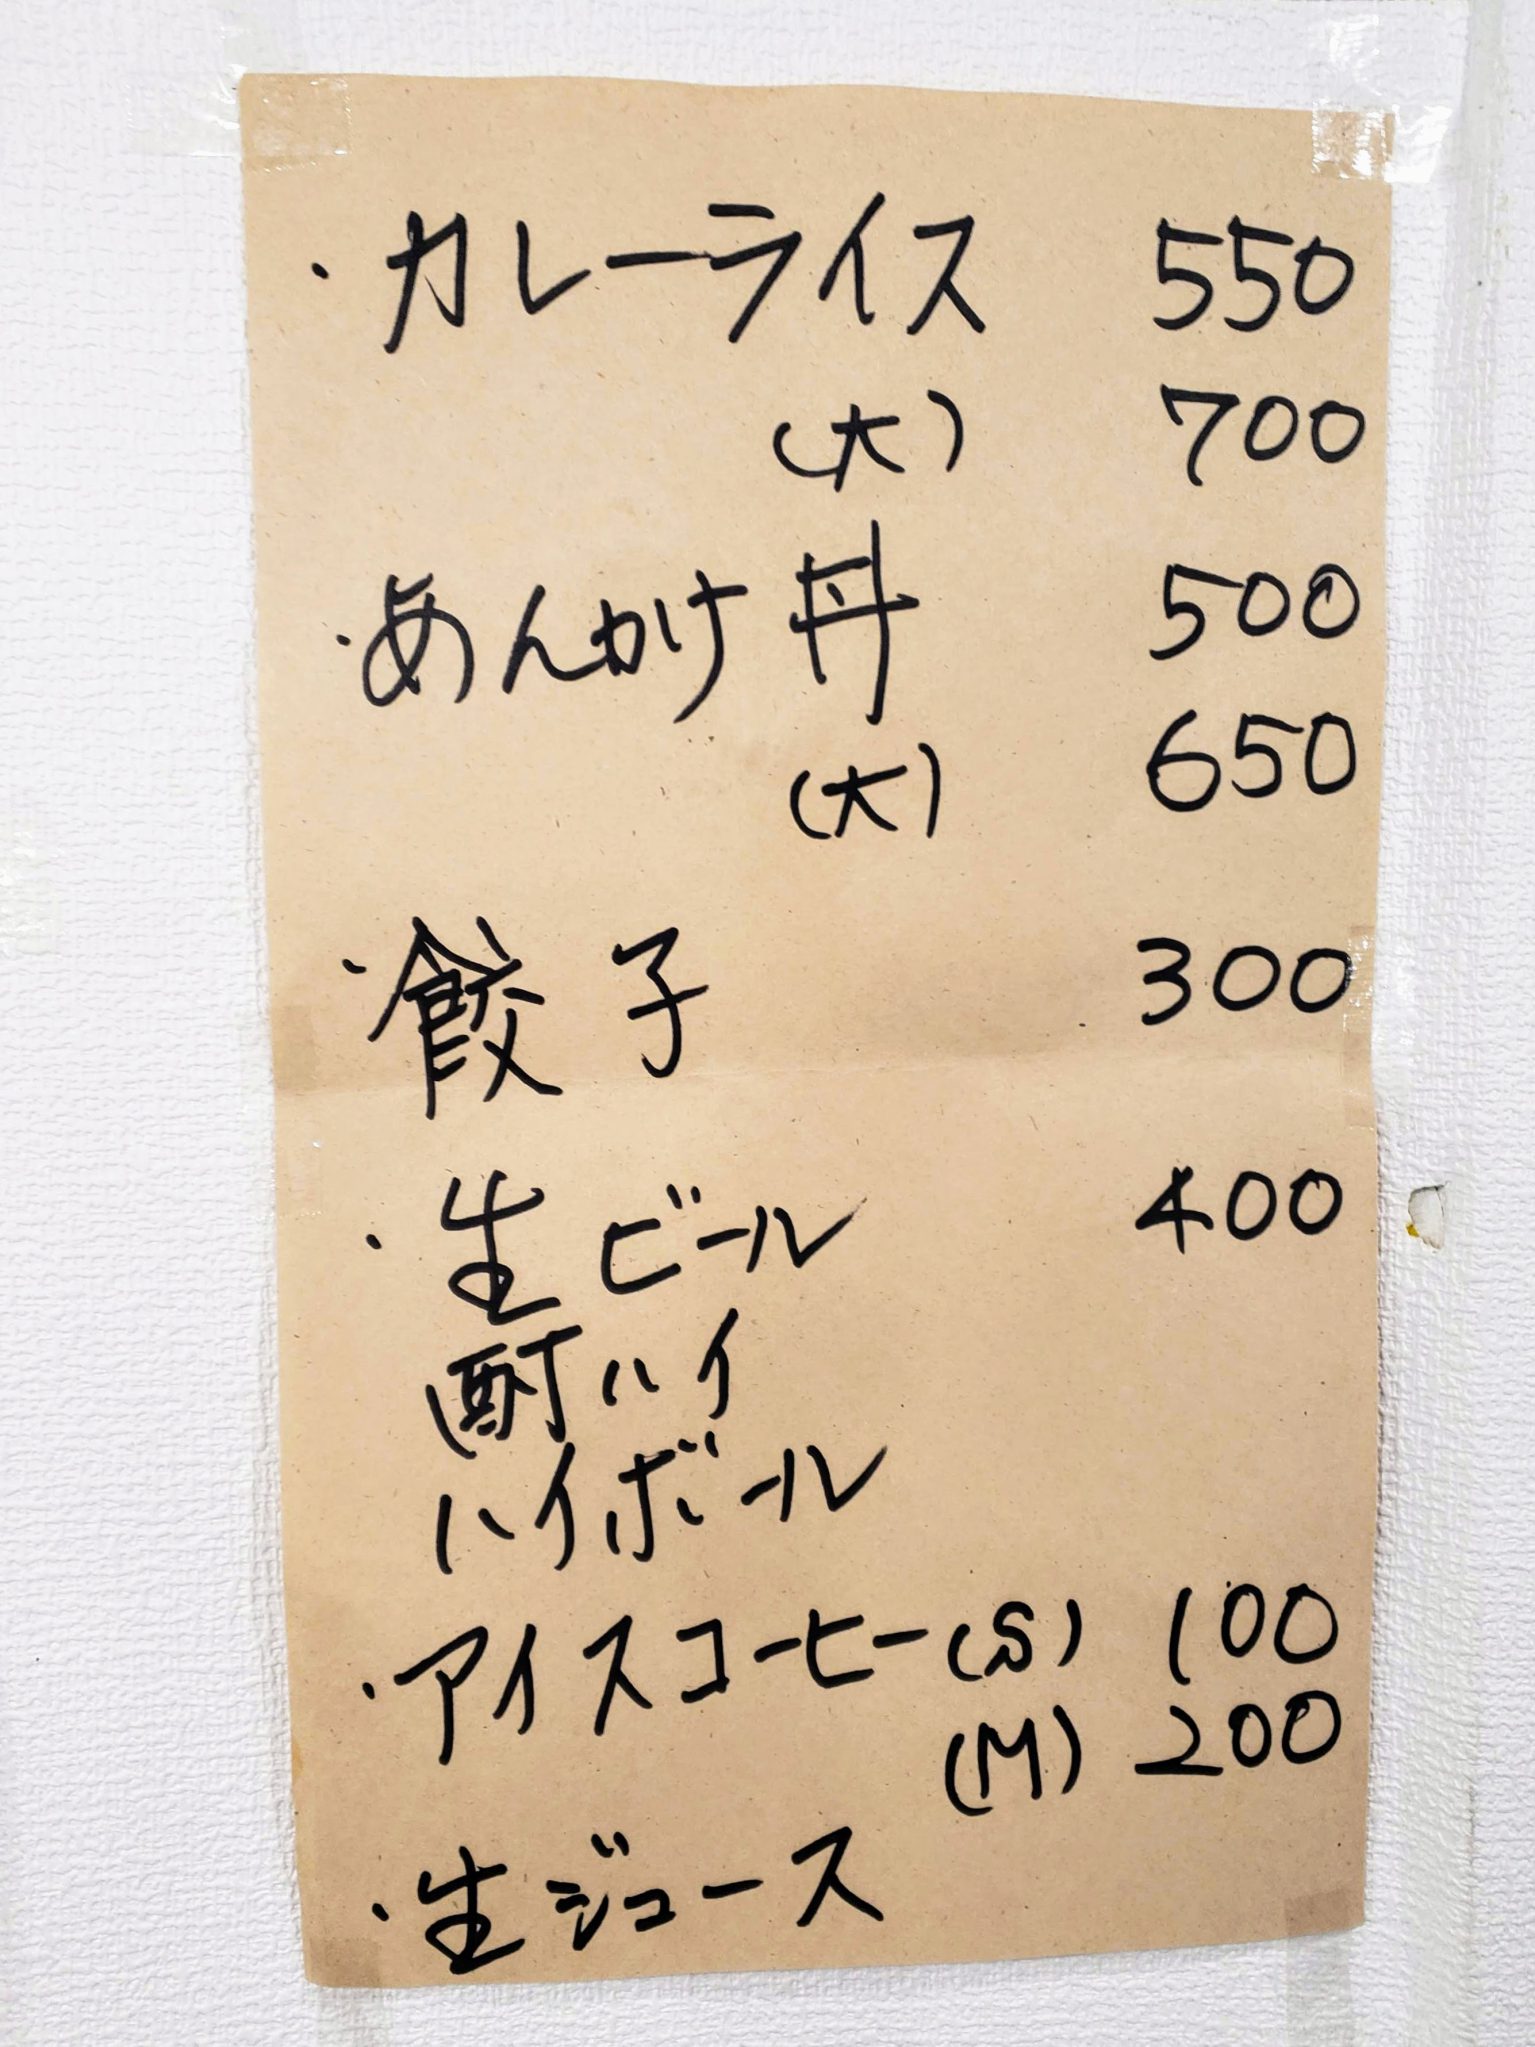 ・カレーライス 550
(大) 700
・あんかけ丼 500
(大) 650
・餃子 300
・生ビール 400
酎ハイ
ハイボール
・アイスコーヒー(S) 100
(M) 200
・生ジュース